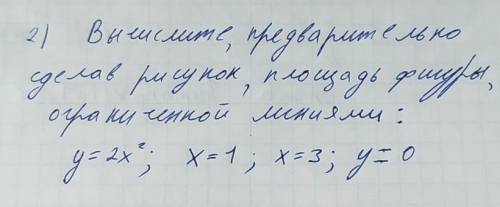 2) Вычислите, предварительно
сделав рисунок, площадь фигуры,
ограниченной линиями:
y=2x²; x=1; x=3; y=0